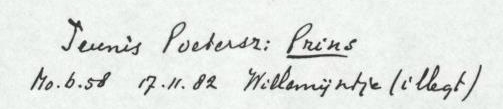 Teunis Poetersz: Prins
Mo.b.58 17.11.82 Willemijntje (illegt)